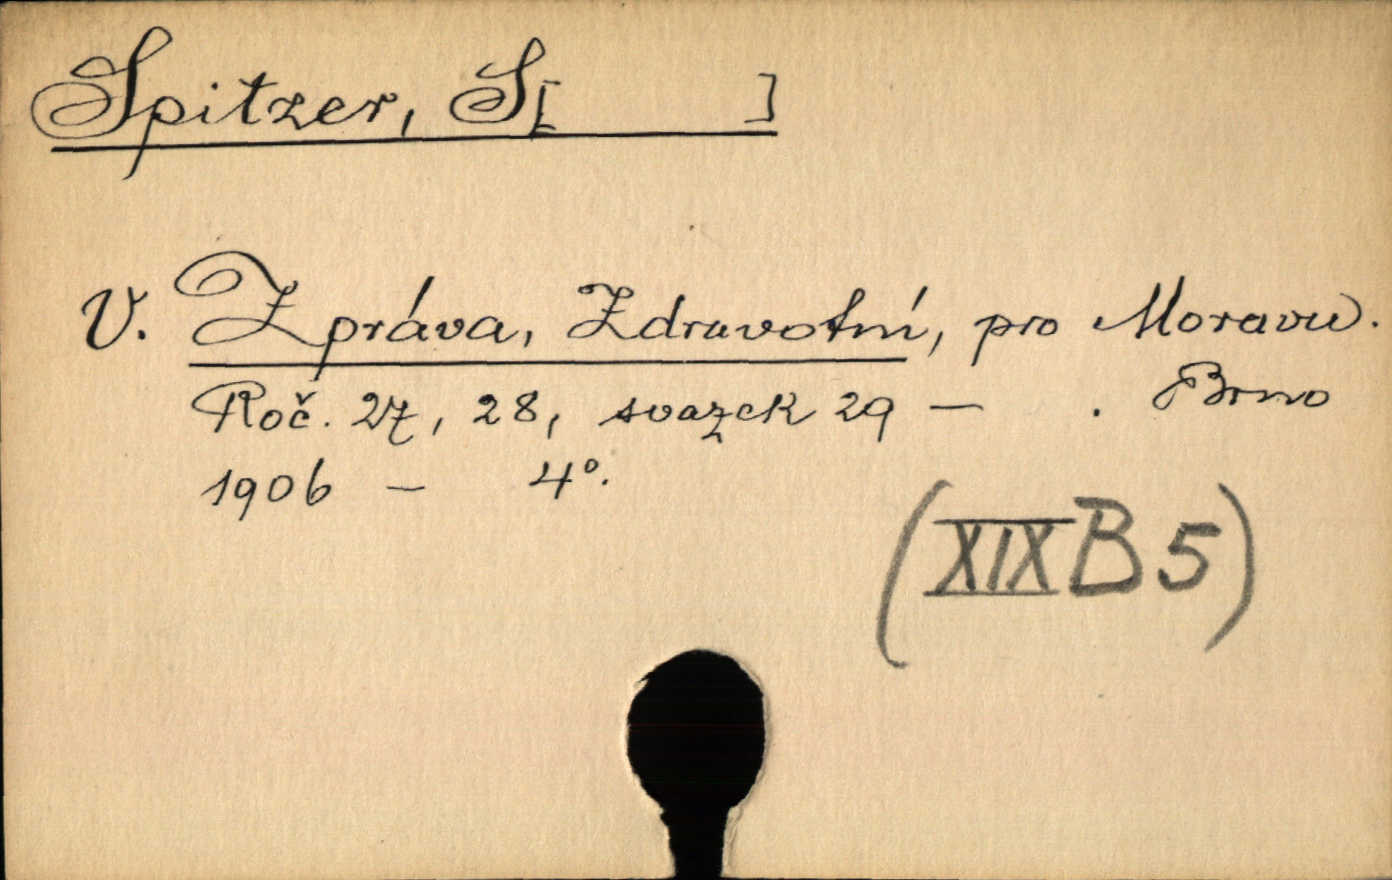 Spitzer, S[ ]
V. Zpráva, Zdravotní, pro Moravu.
Roč. 27, 28, svazek 29 — . Brno
1906 — 4°.
(XIX B 5)